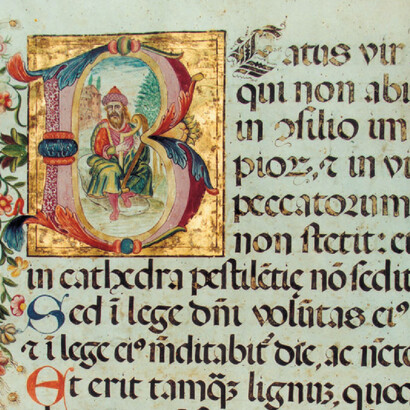 Beatus vir
qui non abi
in ↄsilio im
pioꝝ, ⁊ in vi
peccatorum
non stetit: et
in cathedra pestilētie nō sedit
Sed ī lege dnī volūtas ei⁹
⁊ ī lege ei⁹ m̄ditabit᷑ die, ac nocte
Et erit tamqꝫ lignum, quod